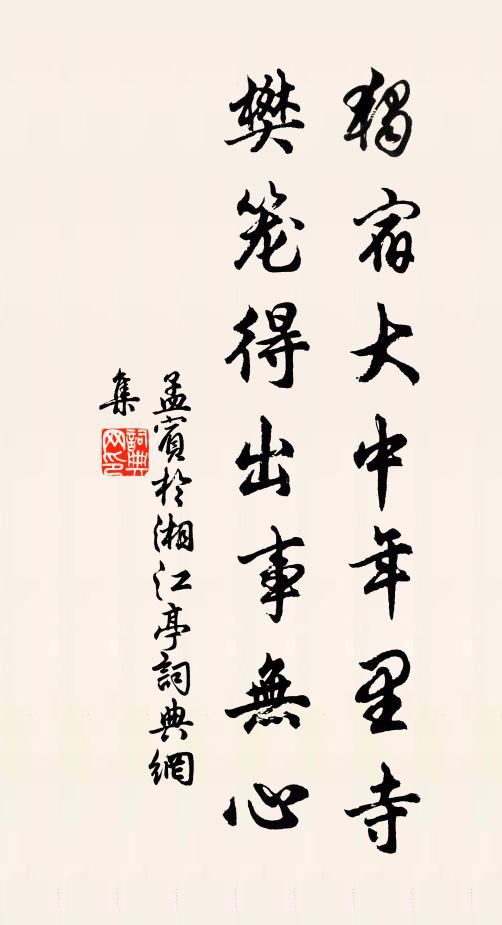 獨宿大中年里寺
樊笼得出事無心
孟賓於湘江亭詞典網
集
詞典
网印